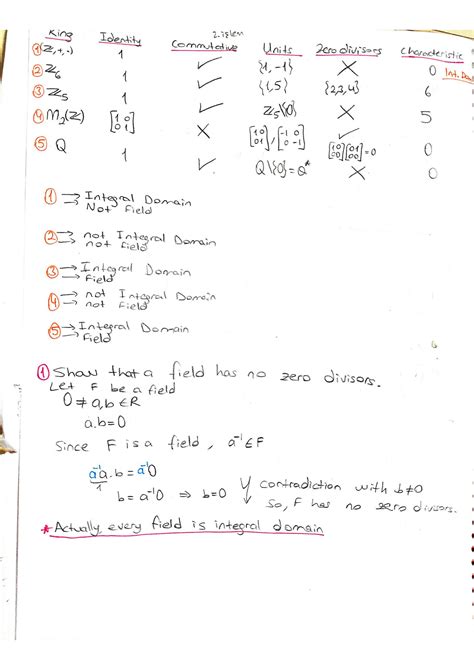 Ring Identity 2.işlem Commutative Units Zero divisors Characteristic
① (Z,+,·) 1 ✓ {1,-1} ✗ 0 Int. Do
② Z₆ 1 ✓ {1,5} {2,3,4} 6
③ Z₅ 1 ✓ Z₅\{0} ✗ 5
④ M₂(Z) [1 0; 0 1] ✗ [1 0; 0 1], [-1 0; 0 -1] ✓ [1 0; 0 0][0 0; 0 1]=0 0
⑤ Q 1 ✓ Q\{0}=Q* ✗ 0
① → Integral Domain
→ Not Field
② → not Integral Domain
→ not field
③ → Integral Domain
→ Field
④ → not Integral Domain
→ not field
⑤ → Integral Domain
→ Field
① Show that a field has no zero divisors.
Let F be a field
0 ≠ a,b ∈ R
a.b=0
Since F is a field, a⁻¹ ∈ F
a⁻¹a.b = a⁻¹0
1
b = a⁻¹0 ⇒ b=0 contradiction with b≠0
So, F has no zero divisors.
* Actually, every field is integral domain